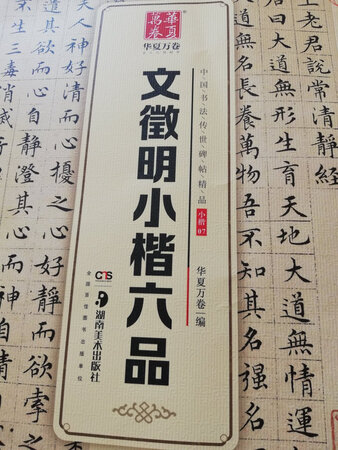 華夏
萬卷
华夏万卷
中·国·书·法·传·世·碑·帖·精·品
小楷07
文徵明小楷六品
华夏万卷 编
湖南美术出版社
全国百佳图书出版单位
上老君說常清靜經
大道無形生育天地大道無情運
無名長養萬物吾不知其名強名
夫人神好清而心擾之
靜而欲牽之
遣其欲而心自靜澄其心
生三毒消滅